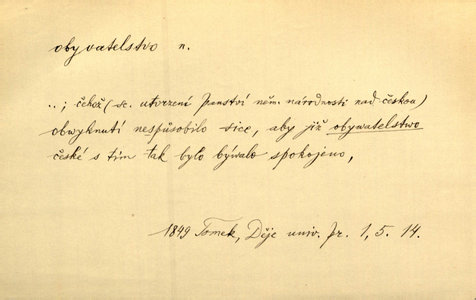 obyvatelstvo n.
..; čehož (sc. utvrzení panství něm. národnosti nad českou)
obwyknutí nespůsobilo sice, aby již obywatelstwo
české s tím tak bylo bývalo spokojeno,
1849 Tomek, Děje univ. pr. 1, 5. 14.